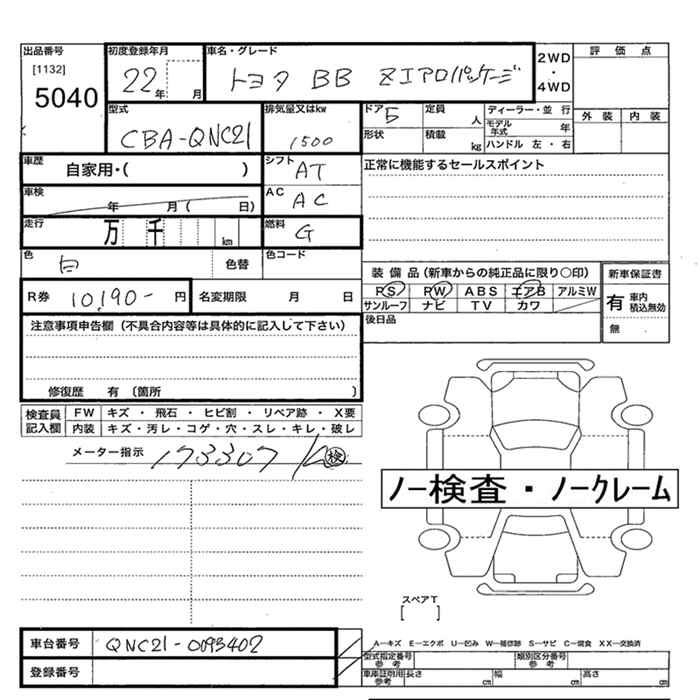 出品番号
[1132]
5040
初度登録年月
22年 月
車名・グレード
トヨタ BB ZエアロパッケージV
2WD
・
4WD
評価点
外装 内装
型式
CBA-QNC21
排気量又はkw
1500
ドア 5
定員 人
ディーラー・並行
モデル年式 年
形状
積載 kg
ハンドル 左・右
車歴
自家用・( )
シフト AT
正常に機能するセールスポイント
車検
年 月( 日)
AC AC
走行
万 千 km
燃料 G
色 白
色替
色コード
R券 10,190- 円
名変期限 月 日
装備品(新車からの純正品に限り○印)
PS PW ABS エアB アルミW
サンルーフ ナビ TV カワ
新車保証書
有 車内積込無効
無
後日品
注意事項申告欄(不具合内容等は具体的に記入して下さい)
修復歴 有〔箇所 〕
検査員記入欄
FW キズ・飛石・ヒビ割・リペア跡・X要
内装 キズ・汚レ・コゲ・穴・スレ・キレ・破レ
メーター指示 173307 K 検
ノー検査・ノークレーム
スペアT
[ ]
車台番号 QNC21-0093402
登録番号
A-キズ E-エクボ U-凹み W-補修跡 S-サビ C-腐食 XX-交換済
型式指定番号 参考
類別区分番号 参考
車庫証明用 参考
長さ cm 幅 cm 高さ cm